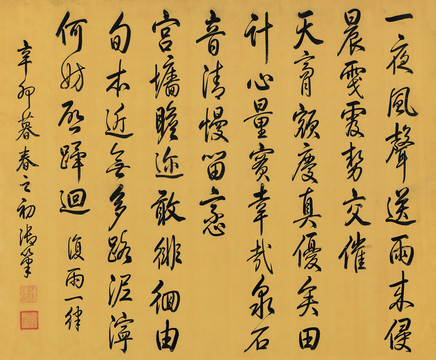 一夜風聲送雨来侵
晨勢交催
天膏額慶真優矣田
計心量實幸哉泉石
音清慢留恋
宫墻瞻迩敢徘徊由
旬本近無多路泥濘
何妨啟蹕迴 復雨一律
辛卯暮春之初御筆